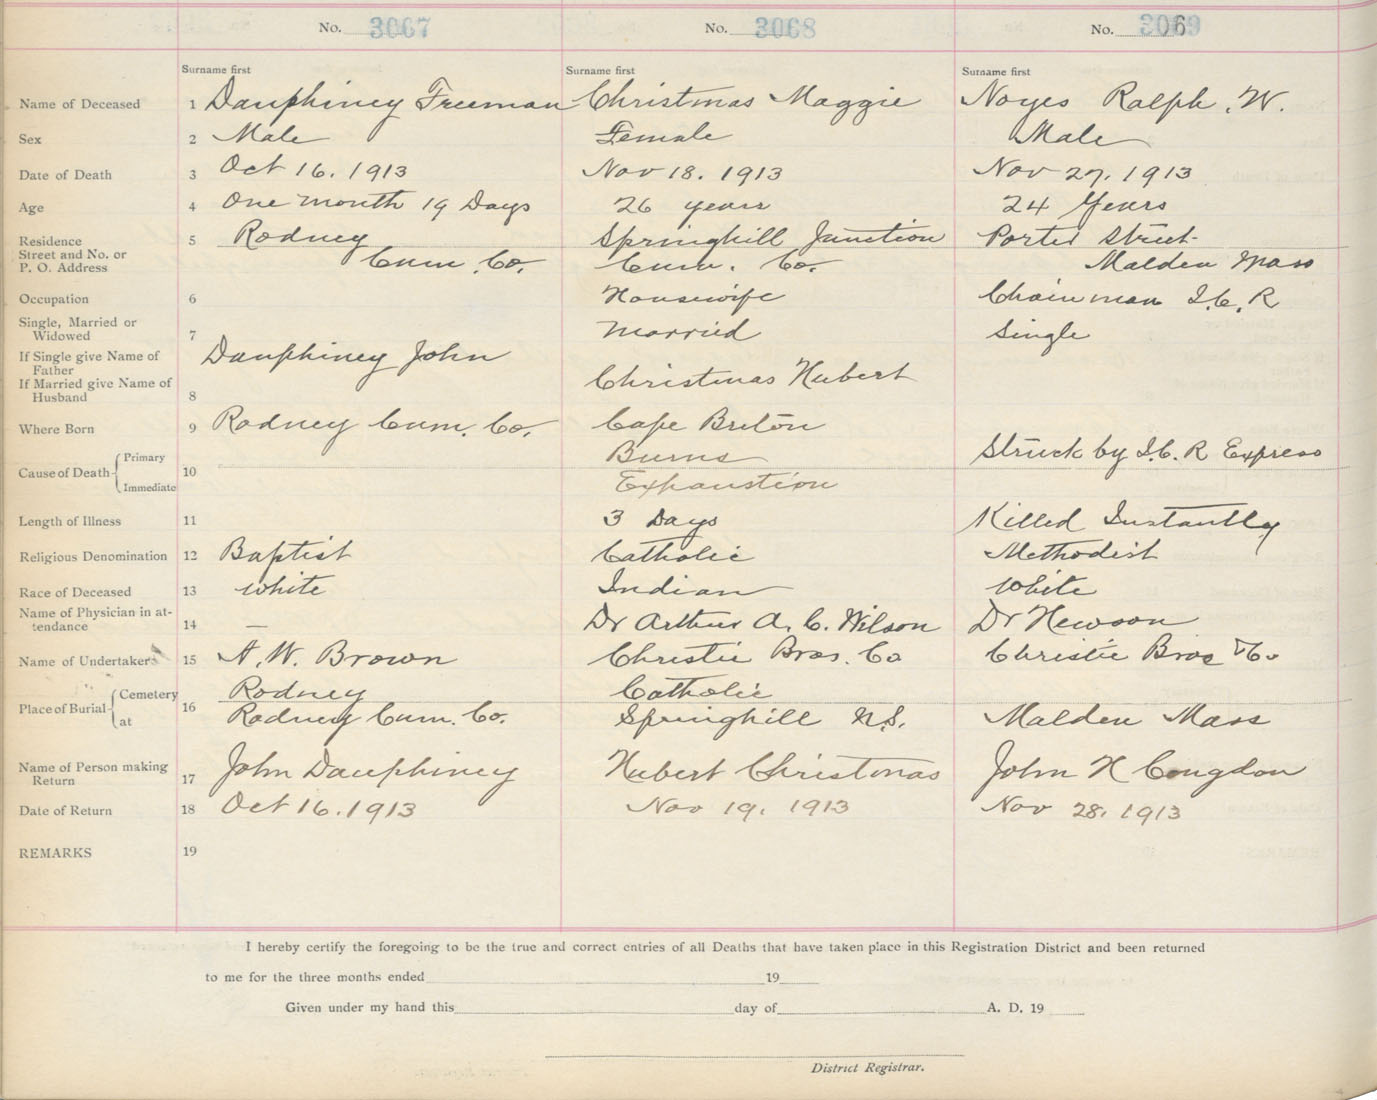 No. 3067 No. 3068 No. 3069
Surname first Surname first Surname first
Name of Deceased 1 Dauphiney Freeman Christmas Maggie Noyes Ralph. W.
Sex 2 Male Female Male
Date of Death 3 Oct 16. 1913 Nov 18. 1913 Nov 27. 1913
Age 4 One month 19 Days 26 years 24 Years
Residence 5 Rodney Springhill Junction Porter Street
Street and No. or
P. O. Address Cum. Co. Cum. Co. Malden Mass
Occupation 6 Housewife Chainman I.C.R
Single, Married or
Widowed 7 Married Single
If Single give Name of
Father Dauphiney John
If Married give Name of
Husband 8 Christmas Hubert
Where Born 9 Rodney Cum. Co. Cape Breton
Cause of Death Primary 10 Burns Struck by I.C.R Express
Immediate Exhaustion
Length of Illness 11 3 Days Killed Instantly
Religious Denomination 12 Baptist Catholic Methodist
Race of Deceased 13 White Indian White
Name of Physician in at-
tendance 14 — Dr Arthur A. C. Wilson Dr Hewson
Name of Undertaker 15 A. W. Brown Christie Bros. Co Christie Bros & Co
Place of Burial Cemetery 16 Rodney Catholic
at Rodney Cum. Co. Springhill N.S. Malden Mass
Name of Person making
Return 17 John Dauphiney Hubert Christmas John H Congdon
Date of Return 18 Oct 16. 1913 Nov 19. 1913 Nov 28. 1913
REMARKS 19
I hereby certify the foregoing to be the true and correct entries of all Deaths that have taken place in this Registration District and been returned
to me for the three months ended 19
Given under my hand this day of A. D. 19
District Registrar.